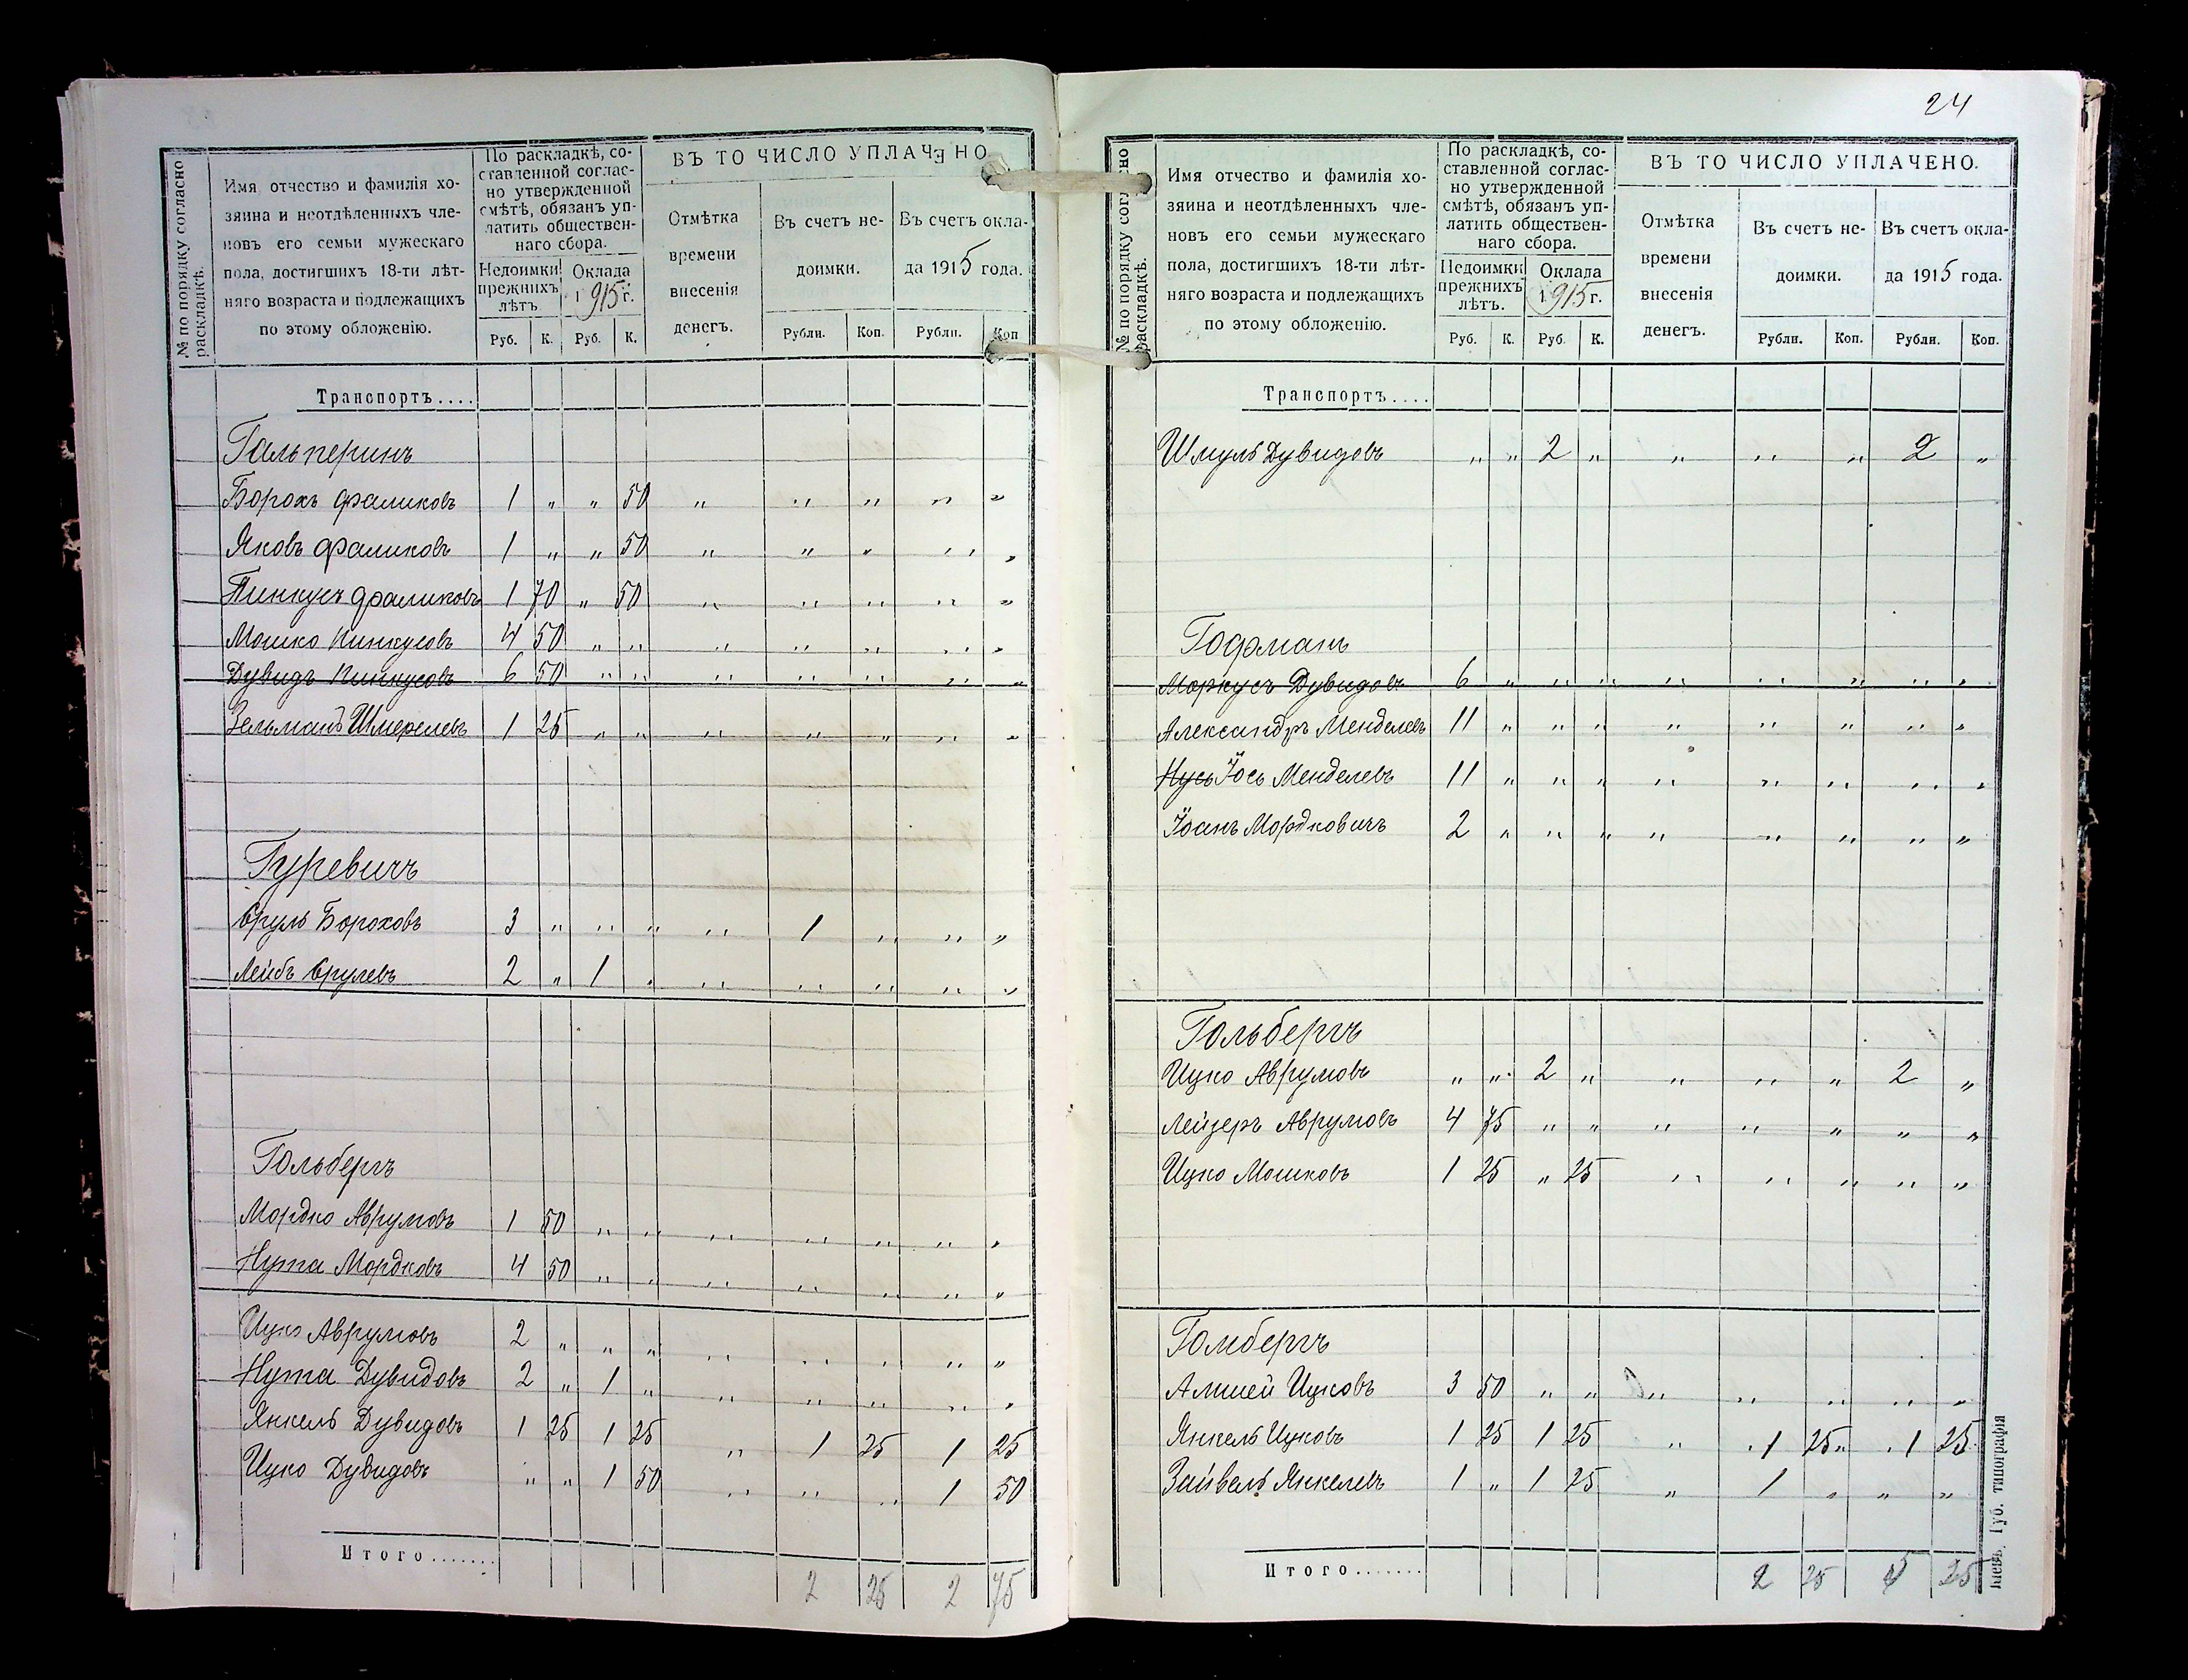 24
№ по порядку согласно раскладкѣ.
Имя, отчество и фамилія хо-
зяина и неотдѣленныхъ чле-
новъ его семьи мужескаго
пола, достигшихъ 18-ти лѣт-
няго возраста и подлежащихъ
по этому обложенію.
По раскладкѣ, со-
ставленной соглас-
но утвержденной
смѣтѣ, обязанъ уп-
латить обществен-
наго сбора.
Недоимки прежнихъ лѣтъ.
Оклада 1915 г.
Руб. К. Руб. К.
ВЪ ТО ЧИСЛО УПЛАЧЕНО
Отмѣтка времени внесенія денегъ.
Въ счетъ не-
доимки.
Въ счетъ окла-
да 1915 года.
Рубли. Коп. Рубли. Коп
Транспортъ....
Гальперинъ
Борохъ Фаликовъ 1 " " 50 " " " " "
Яковъ Фаликовъ 1 " " 50 " " " " "
Пинкусъ Фаликовъ 1 70 " 50 " " " " "
Мошко Пинкусовъ 4 50 " " " " " " "
Дувидъ Пинкусовъ 6 50 " " " " " " "
Зельманъ Шмерелевъ 1 25 " " " " " " "
Гуревичъ
Сруль Бороховъ 3 " " " " 1 " " "
Лейбъ Срулевъ 2 " 1 " " " " " "
Гольбергъ
Мордко Аврумовъ 1 50 " " " " " " "
Нута Мордковъ 4 50 " " " " " " "
Ицко Аврумовъ 2 " " " " " " " "
Нута Дувидовъ 2 " 1 " " " " " "
Янкель Дувидовъ 1 25 1 25 " 1 25 1 25
Ицко Дувидовъ " " 1 50 " " " 1 50
Итого....... 2 25 2 75
№ по порядку согласно раскладкѣ.
Имя отчество и фамилія хо-
зяина и неотдѣленныхъ чле-
новъ его семьи мужескаго
пола, достигшихъ 18-ти лѣт-
няго возраста и подлежащихъ
по этому обложенію.
По раскладкѣ, со-
ставленной соглас-
но утвержденной
смѣтѣ, обязанъ уп-
латить обществен-
наго сбора.
Недоимки прежнихъ лѣтъ.
Оклада 1915 г.
Руб. К. Руб. К.
ВЪ ТО ЧИСЛО УПЛАЧЕНО.
Отмѣтка времени внесенія денегъ.
Въ счетъ не-
доимки.
Въ счетъ окла-
да 1915 года.
Рубли. Коп. Рубли. Коп.
Транспортъ....
Шмуль Дувидовъ " " 2 " " " " 2 "
Гофманъ
Моркусъ Дувидовъ 6 " " " " " " " "
Александръ Менделевъ 11 " " " " " " " "
Нусь Іось Менделевъ 11 " " " " " " " "
Іоанъ Мордковичъ 2 " " " " " " " "
Гольбергъ
Ицко Аврумовъ " " 2 " " " " 2 "
Лейзеръ Аврумовъ 4 75 " " " " " " "
Ицко Мошковъ 1 25 " 25 " " " " "
Гомбергъ
Алшей Ицковъ 3 50 " " " " " " "
Янкель Ицковъ 1 25 1 25 " 1 25 " 1 25
Зайвель Янкелевъ 1 " 1 25 " 1 " " "
Итого....... 2 25 5 25
Кіевъ, Губ. типографія